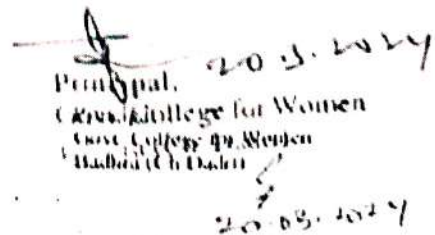 20.3.2024
Principal,
College for Women
Govt. College for Women
Badhra (Ch. Dadri)
20.03.2024